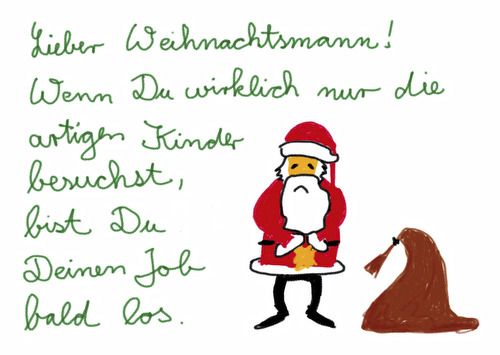 Lieber Weihnachtsmann!
Wenn Du wirklich nur die
artigen Kinder
besuchst,
bist Du
Deinen Job
bald los.